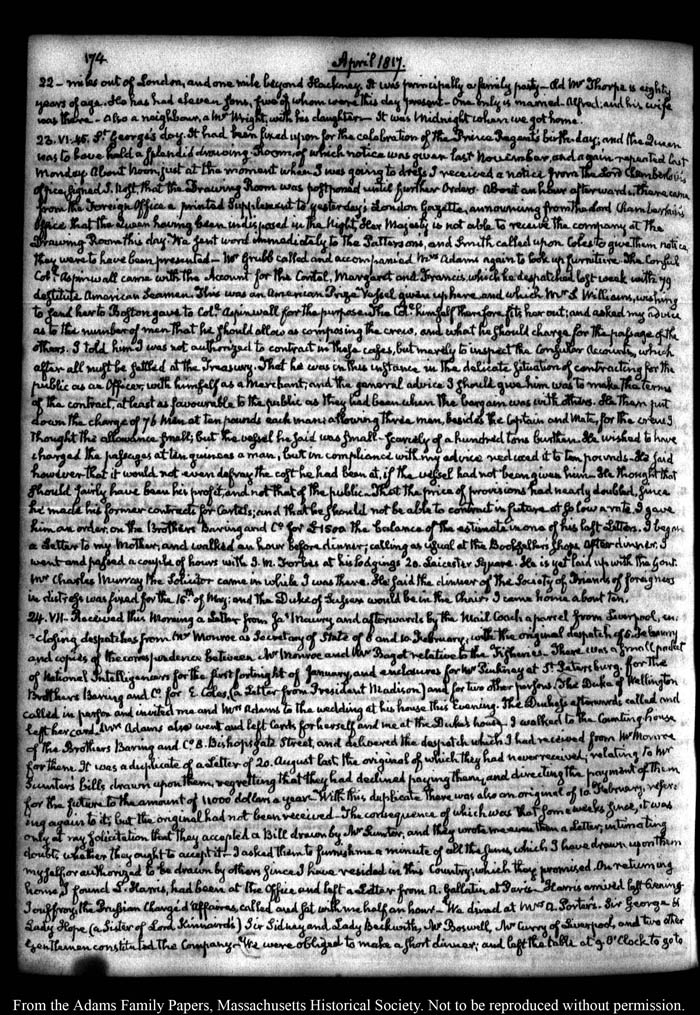 174
April 1817.
22 - miles out of London, and one mile beyond Hackney. It was principally a family party - Old Mr Thorpe is eighty
years of age. He has had eleven sons, five of whom were this day present - One only is married - Alfred; and his wife
was there - Also a neighbour, a Mr Wright, with his daughter - It was Midnight when we got home.
23. VI. 45. St George's day. It had been fixed upon for the celebration of the Prince Regent's birth-day; and the Queen
was to have held a splendid drawing-Room, of which notice was given last November, and again repeated last
Monday. About Noon, just at the moment when I was going to dress I received a notice from the Lord Chamberlain's
office, signed I. Nost, that the Drawing Room was postponed until further Orders. About an hour afterwards, there came
from the Foreign Office a printed Supplement to yesterday's London Gazette, announcing from the Lord Chamberlain's
Office that the Queen having been indisposed in the Night, Her Majesty is not able to receive the company at the
Drawing Room this day. We sent word immediately to the Pattersons, and Smith called upon Coles to give them notice
they were to have been presented - Mr Grubb called and accompanied Mrs Adams again to look up furniture. The Consul
Coll. Aspinwall came with the Account for the Cartel, Margaret and Francis, which he despatched last week with 79
destitute American Seamen. This was an American Prize Vessel given up here, and which Mr S. Williams, wishing
to send her to Boston gave to Coll. Aspinwall for the purpose. The Coll. himself therefore fits her out; and asked my advice
as to the number of men that he should allow as composing the crew, and what he should charge for the passage of the
others. I told him I was not authorized to contract in these cases, but merely to inspect the Consular Accounts, which
after all must be settled at the Treasury. That he was in this instance in the delicate situation of contracting for the
public as an Officer, with himself as a Merchant, and the general advice I should give him was to make the terms
of the contract, at least as favourable to the public as they had been when the bargain was with others. He then put
down the charge of 76 Men at ten pounds each man; allowing three men, besides the Captain and Mate, for the crew. I
thought the allowance small; but the vessel he said was small - scarcely of a hundred tons burthen. He wished to have
charged the passages at ten guineas a man, but in compliance with my advice reduced it to ten pounds. He said
however that it would not even defray the cost he had been at, if the vessel had not been given him. He thought that
should fairly have been his profit, and not that of the public. That the price of provisions had nearly doubled, since
he made his former contracts for Cartels; and that he should not be able to contract in future at so low a rate. I gave
him an order on the Brothers Baring and Co for £1500 the balance of the estimate in one of his last Letters. I began
a Letter to my Mother, and walked an hour before dinner; calling as usual at the Booksellers shops. After dinner I
went and passed a couple of hours with I. M. Forbes at his lodgings 20. Leicester Square. He is yet laid up with the Gout.
Mr Charles Murray the Solicitor came in while I was there. He said the dinner of the Society of Friends of foreigners
in distress was fixed for the 16th of May; and the Duke of Sussex would be in the Chair. I came home about ten.
24. VII. Received this Morning a Letter from Jas Maury, and afterwards by the Mail Coach a parcel from Liverpool, en-
closing despatches from Mr Monroe as Secretary of State of 8 and 10 February, with the original despatch of 5 February
and copies of the correspondence between Mr Monroe and Mr Bagot relative to the Fisheries. There was a small packet
of National Intelligencers for the first fortnight of January, and enclosures for Mr Pinkney at St Petersburg; for the
Brothers Baring and Co. for E. Coles, (a Letter from President Madison) and for two other persons. The Duke of Wellington
called in person and invited me and Mrs Adams to the wedding at his house this Evening. The Duchess afterwards called and
left her card. Mrs Adams also went and left Cards for herself and me at the Duke's house. I walked to the Counting house
of the Brothers Baring and Co 8. Bishopsgate Street, and delivered the despatch which I had received from Mr Monroe
for them. It was a duplicate of a Letter of 20. August last the original of which they had never received; relating to Mr
Sumter's bills drawn upon them, regretting that they had declined paying them, and directing the payment of them
for the future to the amount of 11000 dollars a year. With this duplicate there was also an original of 10 February, refer-
ring again to it; but the original had not been received. The consequence of which was that some weeks since, it was
only at my solicitation that they accepted a Bill drawn by Mr Sumter, and they wrote me even then a letter, intimating
doubts, whether they ought to accept it - I asked them to furnish me a minute of all the sums, which I have drawn upon them
myself or authorized to be drawn by others since I have resided in this Country; which they promised. On returning
home, I found L. Harris, had been at the Office and left a Letter from A. Gallatin at Paris - Harris arrived last Evening.
Jouffroy, the Prussian Chargé d'Affaires, called and sat with me half an hour - We dined at Mrs A. Porter's. Sir George &
Lady Hope (a Sister of Lord Kinnaird's) Sir Sidney and Lady Beckwith, Mr Boswell, Mr Curry of Liverpool, and two other
Gentlemen constituted the Company - We were obliged to make a short dinner; and left the table at 9. O'Clock to go to
From the Adams Family Papers, Massachusetts Historical Society. Not to be reproduced without permission.